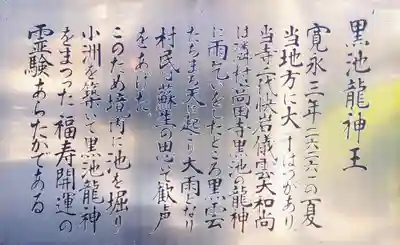 黒池龍神王
寛永三年(一六二六)の夏
当地方に大干ばつがあり、
当寺二代快岩儀雲大和尚
は隣村高国寺黒池龍神
に雨乞いをしたところ黒雲
たちまち天に起こり大雨となり
村民は蘇生の思いで歓声
をあげた。
このため境内に池を堀り
小洲を築いて黒池龍神
をまつった 福寿開運の
霊験あらたかである